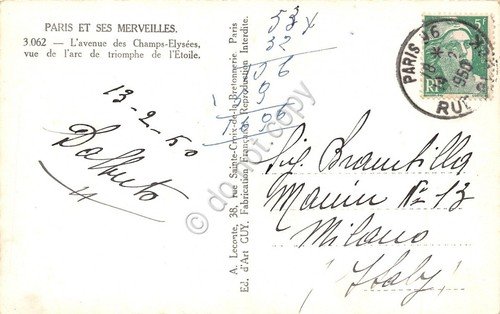 PARIS ET SES MERVEILLES.
3.062 — L'avenue des Champs-Elysées,
vue de l'arc de triomphe de l'Étoile.
13-2-50
A. Leconte, 38, rue Sainte-Croix-de-la-Bretonnerie Paris
Ed. d'Art GUY. Fabrication Française. Reproduction Interdite.
53 x
32
106
PARIS
RF
5F
1950
RUE
Sig. Brambilla
Manin No 13
Milano
Italy
do not copy